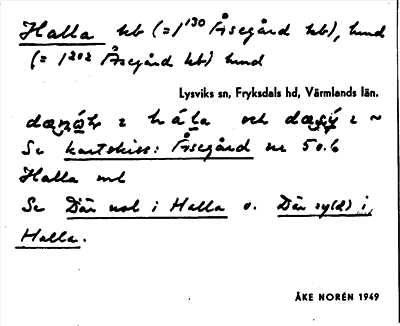 Halla hb (=1¹³⁰ Åsegård hb), hmd
(= 1²⁰² Åsegård hb) hmd
Lysviks sn, Fryksdals hd, Värmlands län.
och
Se kartskiss: Åsegård nr 50.6
Halla ml
Se Där nol i Halla o. Där sy(d) i
Halla.
ÅKE NORÉN 1949